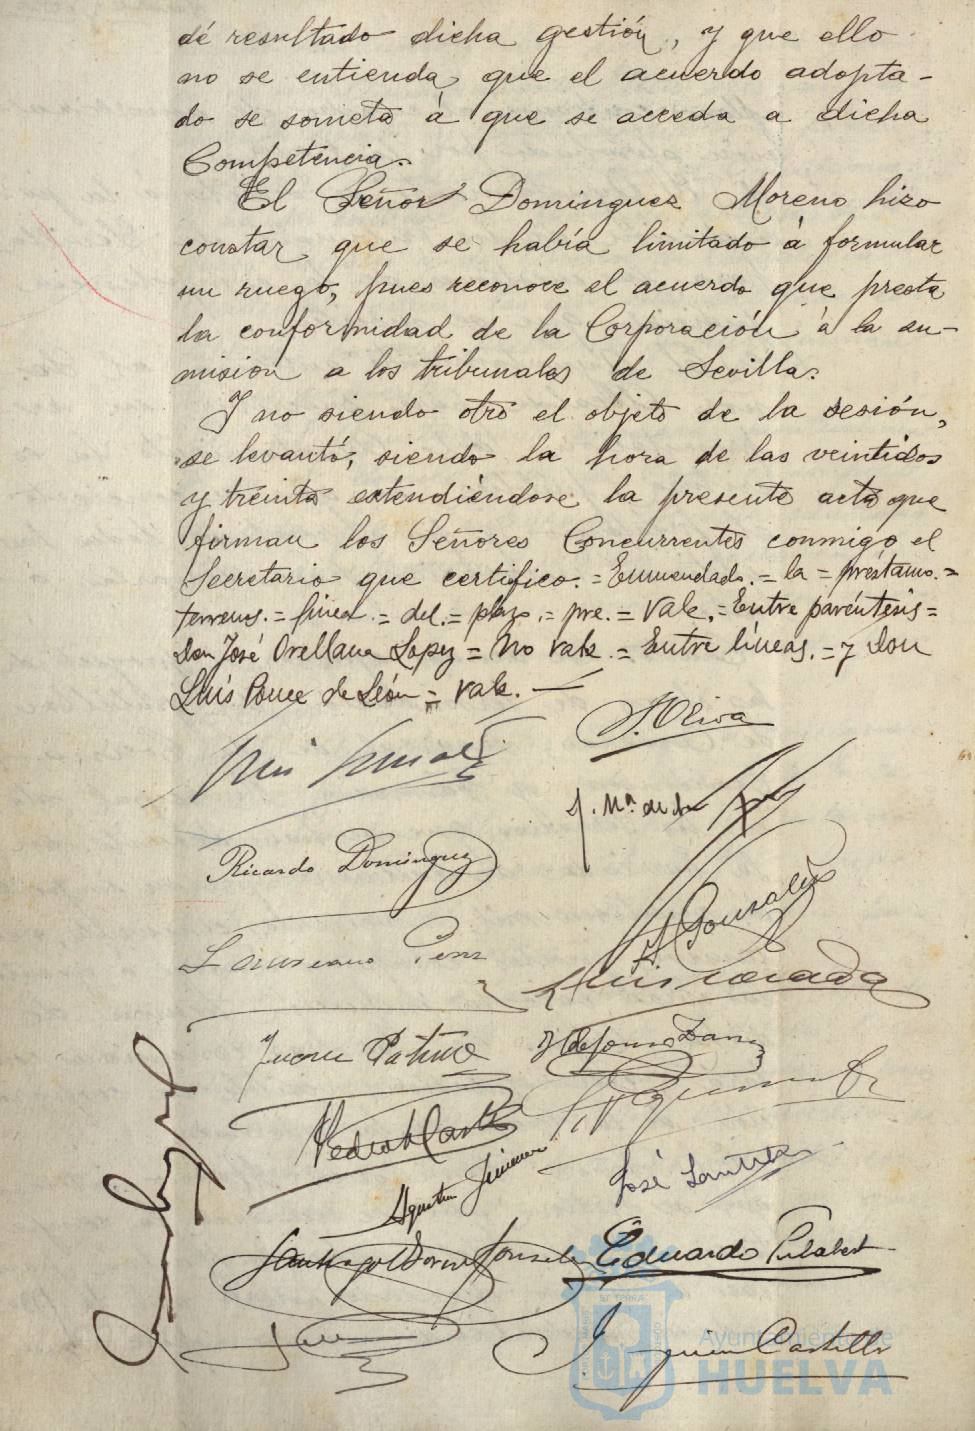 dé resultado dicha gestión, y que ello
no se entienda que el acuerdo adopta-
do se someta á que se acceda a dicha
Competencia.
El Señor Dominguez Moreno hizo
constar que se había limitado á formular
un ruego, pues reconoce el acuerdo que presta
la conformidad de la Corporación á la su-
mision a los tribunales de Sevilla.
Y no siendo otro el objeto de la sesión,
se levantó, siendo la hora de las veintidos
y treinta extendiéndose la presente acta que
firman los Señores Concurrentes conmigo el
Secretario que certifico. = Enmendado. = la = préstamo. =
terrenos. = finca. = del. = plazo. = pre. = Vale. = Entre paréntesis =
Don José Orellana López = No vale. = Entre líneas. = y Don
Luís Ponce de León = vale. —
J. Oliva
J. Mª. de la
Ricardo Dominguez
González
Laureano
Juan Patiño
Ildefonso
Pedro
Agustin Jimenez
José
Santiago González
Eduardo
Joaquin Castillo
Ayuntamiento de
HUELVA